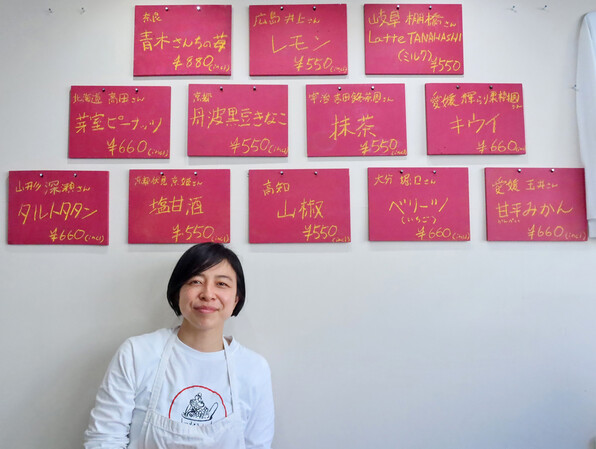 奈良
青木さんちの苺
¥880(incl)
広島 井上さん
レモン
¥550(incl)
岐阜 棚橋さん
Latte TANAHASHI
(ミルク) ¥550
北海道 高田さん
芽室ピーナッツ
¥660(incl)
京都
丹波黒豆きなこ
¥550(incl)
宇治 吉田銘茶園さん
抹茶
¥550(incl)
愛媛
キウイ
¥660(incl)
山形 深瀬さん
タルトタタン
¥660(incl)
京都伏見 京姫さん
塩甘酒
¥550(incl)
高知
山椒
¥550(incl)
大分 堀口さん
ベリーツ
(いちご)
¥660(incl)
愛媛 玉井さん
甘平みかん
¥660(incl)